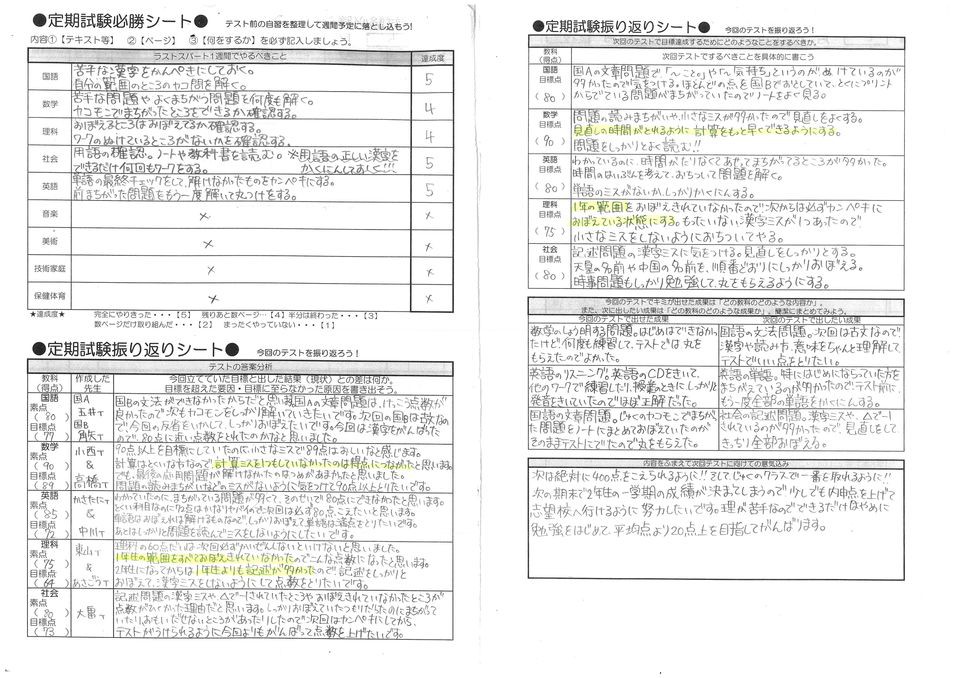 ●定期試験必勝シート●　テスト前の自習を整理して週間予定に落とし込もう!
内容①【テキスト等】　②【ページ】　③【何をするか】を必ず記入しましょう。
ラストスパート1週間でやるべきこと　達成度
国語　苦手な漢字をかんぺきにしておく。
自分の範囲のところのカコ問を解く。　5
数学　苦手な問題やよくまちがう問題を何度も解く。
カコモンでまちがったところをできるか確認する。　4
理科　おぼえるところはおぼえてるか確認する。
ワークのぬけているところがないかを確認。　4
社会　用語の確認。ノートや教科書を読む。※用語の正しい漢字を
できるだけ何回もワークをする。　かくにんしておく!!!　5
英語　単語の最終チェックをして、解けなかったものをカンペキにする。
前まちがった問題をもう一度解いて丸つけをする。　5
音楽　×　×
美術　×　×
技術家庭　×　×
保健体育　×　×
★達成度★　完全にやりきった・・・【5】　残りあと数ページ…【4】半分は終わった・・・【3】
数ページだけ取り組んだ・・・【2】　まったくやっていない・・・【1】
●定期試験振り返りシート●　今回のテストを振り返ろう!
テストの答案分析
教科(得点)　作成した先生　今回立てていた目標と出した結果（現状）との差は何か。
目標を超えた要因・目標に至らなかった原因を書き出そう。
国語　素点(80)　目標点(77)　国A　玉井T　国B　角矢T
国Bの文法ができなかったからだと思います。国Aの文章問題は、けっこう点数が
良かったので次もカコモンをしっかり解いていきたいです。次回の国Bは古文なの
で、今回の反省をいかして、しっかりおぼえたいです。今回は漢字をがんばった
ので、80点に近い点数をとれたのかなと思いました。
数学　素点(90)　目標点(89)　小西T　&　高橋T
90点以上を目標にしていたのに、小さなミスで89点はおしいなと感じます。
計算はとくいなほうなので、計算ミスを1つもしていなかったのは得点につながったと思います。
でも、最後の応用問題が解けなかったのはつめがあまかったと思いました。
問題の読みまちがいなどのミスがないように気をつけて90点以上とりたいです。
英語　素点(85)　目標点(72)　&　中川T
わかっていたのに、まちがっている問題が多くて、そのせいで80点にできなかったと思います。
とくい科目なのに72点はかなりヤバイので次回は必ず80点こえたいと思います。
単語はおぼえれば解けるものなので、しっかりおぼえて単語は満点をとりたいです。
あとはしっかりと問題を読んでミスをしないようにしたいです。
理科　素点(75)　目標点(64)　東山T　&　あさごうT
理科の60点だいは、次回必ずかいぜんしないといけないと思いました。
1年生の範囲をすべておぼえきれていなかったのでこんな点数になったと思います。
2年生になってからは1年生よりも記述が多かったので記述をしっかりと
おぼえて、漢字ミスをしないようにして点数をとりたいです。
社会　素点(80)　目標点(73)　大黒T
記述問題の漢字ミスや、△で−1されていたところや おぼえていなかったところが
点数がひくかった理由だと思います。しっかりおぼえていたつもりだったのにまちがって
いたり、おもいだせないところがあったりしたので次回はカンペキにしてから、
テストがうけられるように今回よりもがんばって点数を上げたいです。
●定期試験振り返りシート●　今回のテストを振り返ろう!
次回のテストで目標達成するためにどのようなことをするべきか。
教科(得点)　次回テストでするべきことを具体的に書こう
国語　目標点(80)
国Aの文章問題で「〜こと。」や「〜気持ち」というのがぬけているのが
多かったので気をつける。ほとんどの点を国Bでおとしていて、とくにプリント
からでている問題がまちがっていたのでノートをよく見る。
数学　目標点(90)
問題の読みまちがいや、小さなミスが多かったので見直しをよくする。
見直しの時間がとれるように計算をもっと早くできるようにする。
問題をしっかりとよく読む!!
英語　目標点(80)
わかっているのに、時間がたりなくてあせってまちがえてるところが多かった。
時間のはいぶんを考えて、おちついて問題を解く。
単語のミスがないか、しっかりかくにんする。
理科　目標点(75)
1年の範囲をおぼえきれていなかったので次からは必ずカンペキに
おぼえている状態にする。もったいない漢字ミスが1つあったので、
小さなミスをしないようにおちついてやる。
社会　目標点(80)
記述問題の漢字ミスに気をつける。見直しをしっかりとする。
天皇の名前や中国の名前を、順番どおりにしっかりおぼえる。
時事問題もしっかり勉強して、丸をもらえるようにする。
今回のテストでキミが出せた成果は「どの教科のどのような内容か」。
また、次に出したい成果は「どの教科のどのような成果か」。簡潔にまとめてみよう。
今回のテストで出せた成果　次回のテストで出したい成果
数学のしょう明する問題。はじめはできなかっ
たけど何度も練習して、テストでは丸を
もらえたのでよかった。
国語の文法問題。次回は古文なので
漢字や読み方、意味をちゃんと理解して
テストでいい点をとりたい。
英語のリスニング。英語のCDをきいて、
他のワークで練習したり、授業のときにしっかり
発音をきいていたのでほぼ正解だった。
英語の単語。特にはじめにならっていた方を
まちがえているのが多かったのでテスト前に
もう一度全部の単語をかくにんする。
国語の文章問題。じゅくのカコモンでまちがっ
た問題をノートにまとめておぼえていたのが
そのままテストにでたので丸をもらえた。
社会の記述問題。漢字ミスや、△で−1
されているのが多かったので、見直しをして
きっちり全部おぼえる。
内容をふまえて次回テストに向けての意気込み
次は絶対に400点をこえられるように!! そしてじゅくのクラスで一番を取れるように!!
次の期末で2年生の一学期の成績が決まってしまうので少しでも内申点を上げて
志望校へ行けるように努力したいです。理科が苦手なのでできるだけはやめに
勉強をはじめて、平均点より20点上を目指してがんばります。